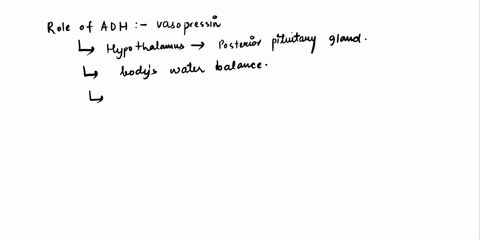 Role of ADH :- vasopressin
↳ Hypothalamus → Posterior pituitary gland.
↳ body's water balance.
↳